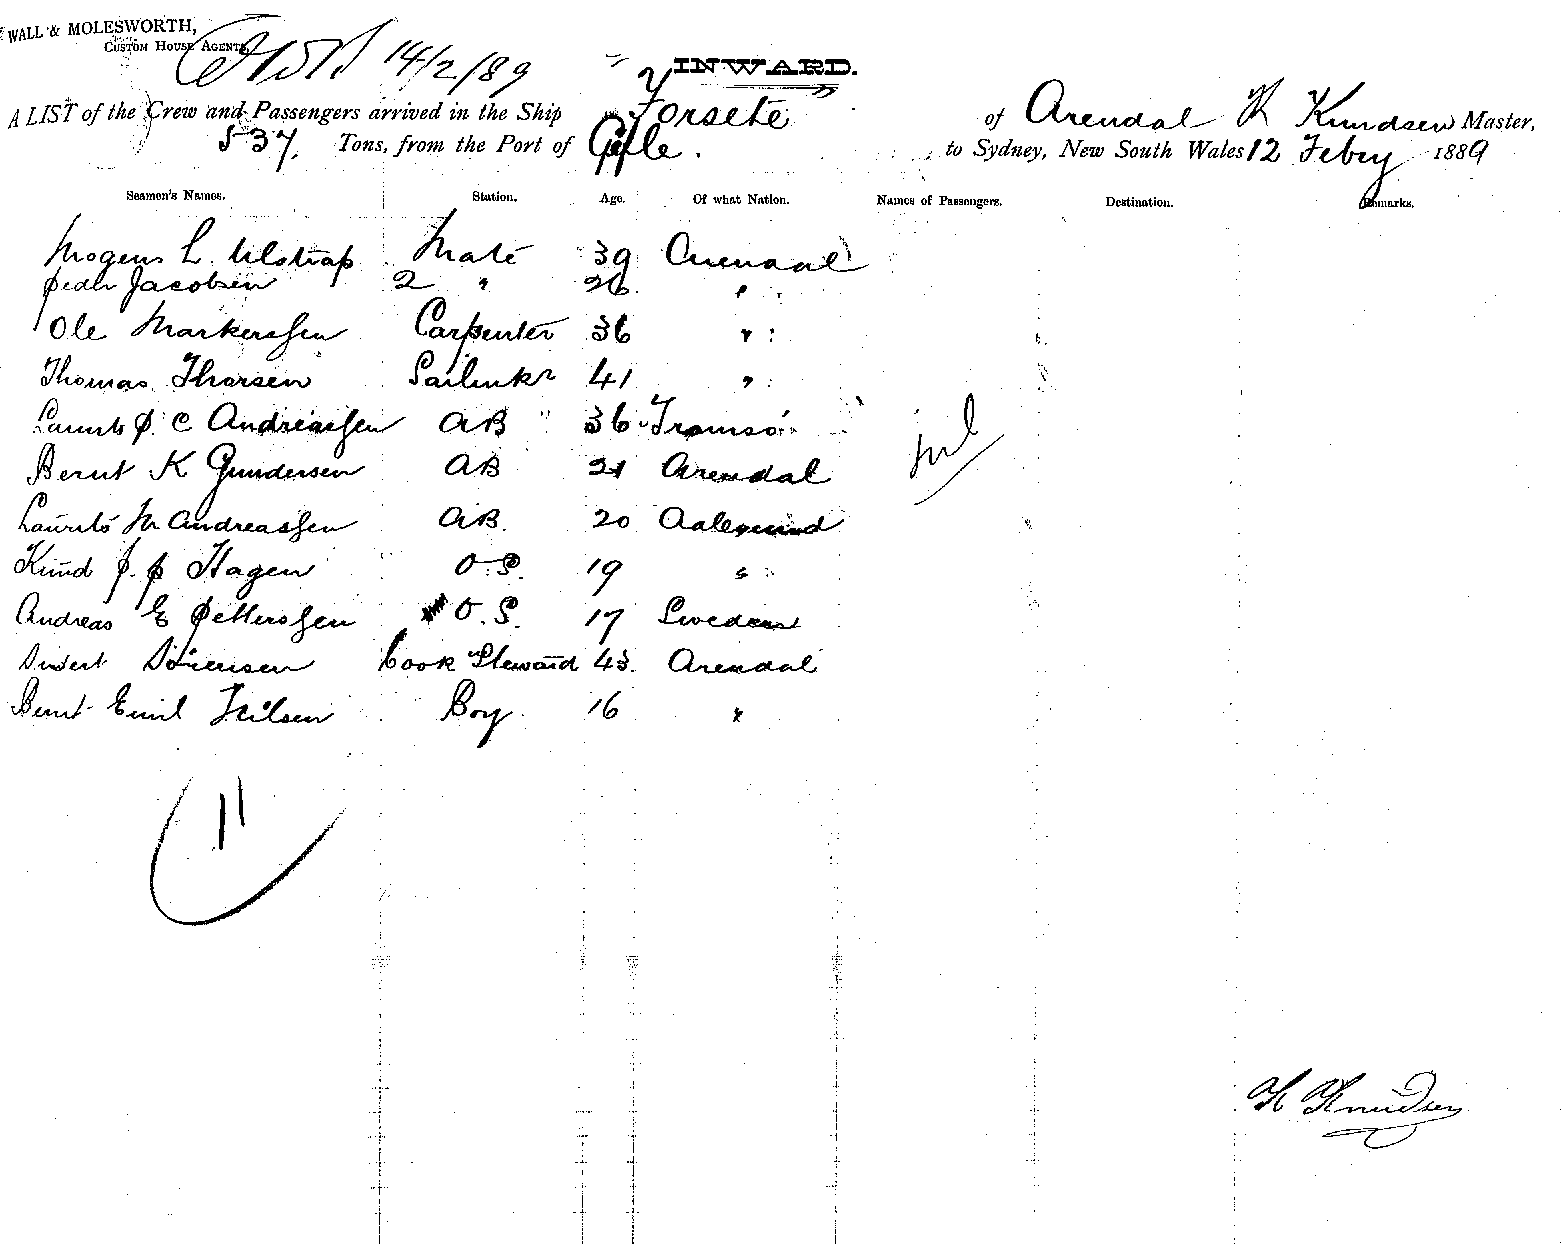 WALL & MOLESWORTH,
CUSTOM HOUSE AGENTS
14/2/89
INWARD.
A LIST of the Crew and Passengers arrived in the Ship Forsete of Arendal K Knudsen Master,
537. Tons, from the Port of Gefle. to Sydney, New South Wales 12 Feby 1889
Seamen's Names. Station. Age. Of what Nation. Names of Passengers. Destination. Remarks.
Mogens L. Ulstrup Mate 39 Arendal
Peder Jacobsen 2 " 26 "
Ole Markussen Carpenter 36 "
Thomas Thorsen Sailmkr 41 "
Laurits P. C Andreassen AB 36 Tromsö
Bernt K Gundersen AB 21 Arendal
Laurits M Andreassen AB. 20 Aalesund
Knud J. P Hagen O.S. 19 "
Andreas E Petterssen O.S. 17 Sweden
Sivert Sörensen Cook Steward 43 Arendal
Bernt Emil Neilsen Boy 16 "
nil
11
K Knudsen